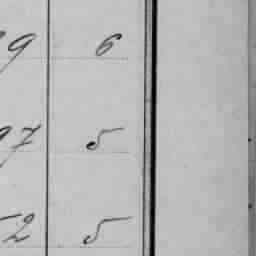 9 6
97 5
52 5